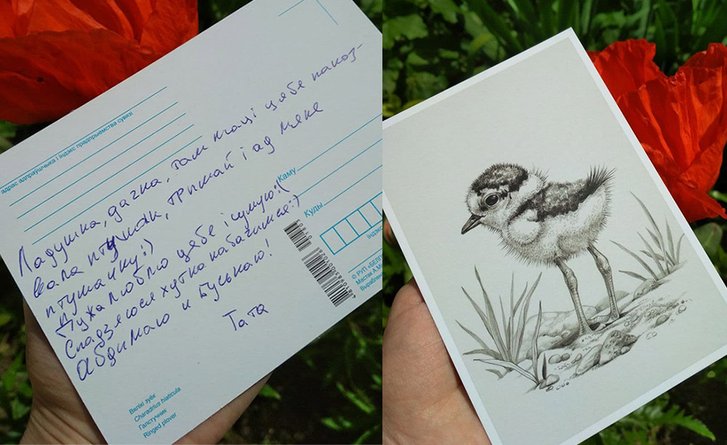 адрас адпраўшчыка і індэкс прадпрыемства сувязі
Ладушка, дачка, там маці цябе пакоз-
вала птушак, трымай і ад мяне
птушачку:)
Дужа люблю цябе і сумую:(
Спадзяюся хутка пабачымся:)
Абдымаю и буськаю!
Тата
Каму
Куды
© РУП «БЕЛ
Мастак А.М
Выраблена
Вялікі зуёк
Charadrius hiaticula
Галстучник
Ringed plover